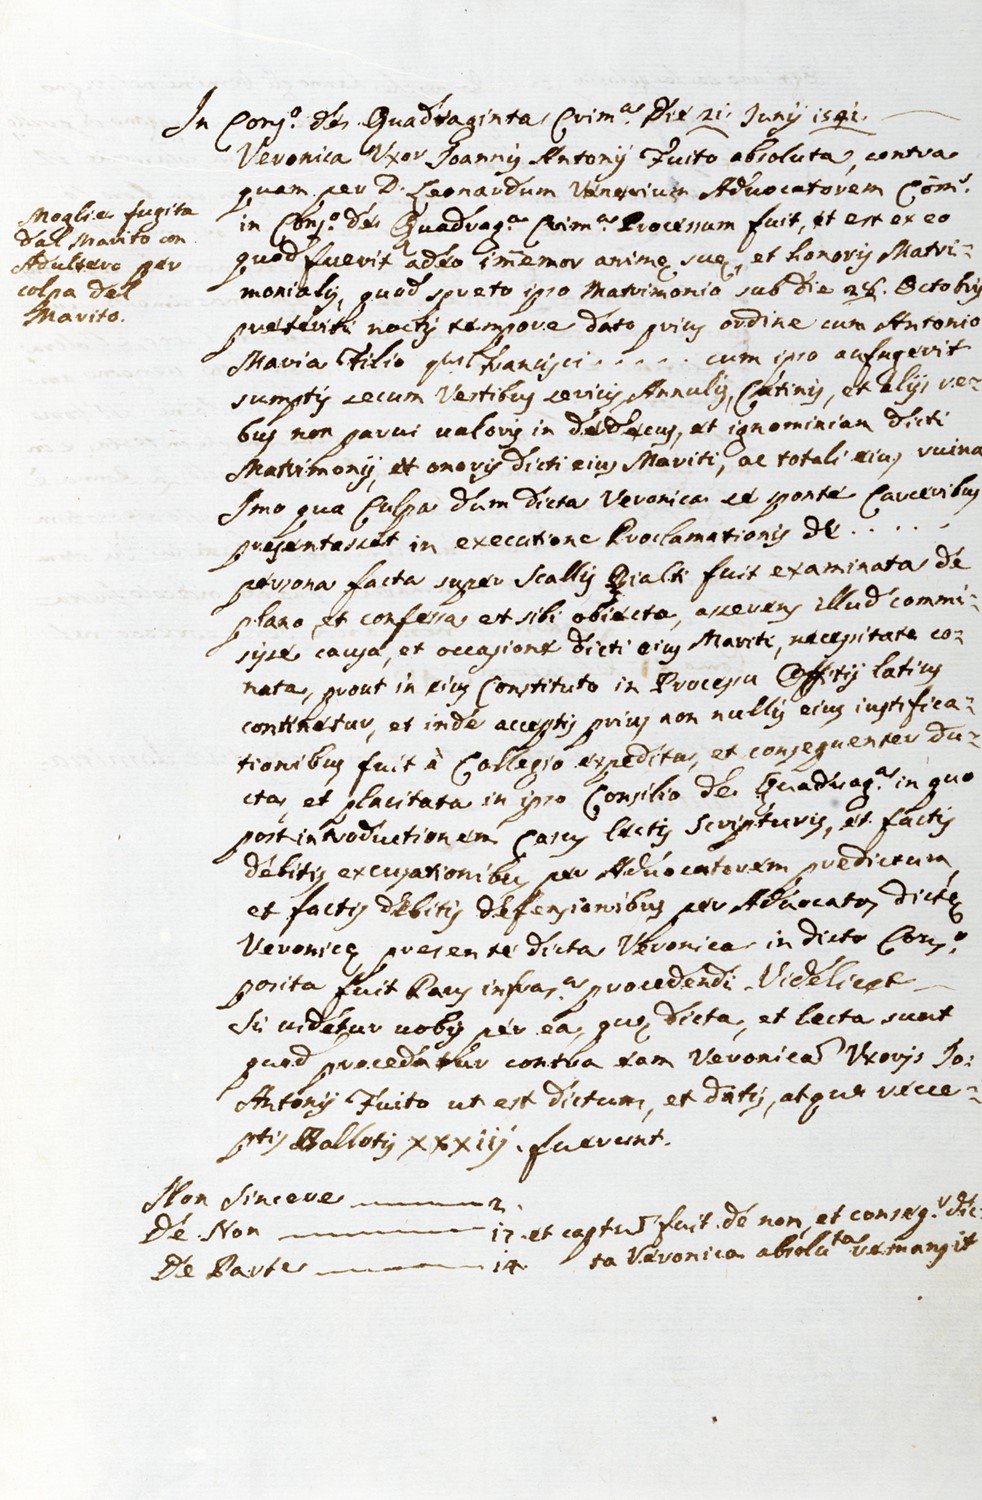 In Cons.o de Quadraginta Crim.a Die 21. Junij 1542.
Veronica Uxor Joannis Antonij Tuito absoluta, contra
quam per D. Leonardum Venerium Advocatorem Com̄.
in Cons.o de Quadrag.a Crim.a Processum fuit, et est ex eo
quod fuerit adeo im̄emor animę suę, et honoris Matri-
monialis, quod spreto ipso Matrimonio sub die 28. Octobris
preteriti noctis tempore dato prius ordine cum Antonio
Maria Filio qus. Francisci . . . . . cum ipso aufugerit
sumptis secum Vestibus sericis, Annulis, Catinis, et alijs re-
bus non parui ualoris in dedecus, et ignominiam dicti
Matrimonij, et onoris dicti eius Mariti, ac totali eius ruina
Imo qua Culpa dum dicta Veronica se sponte Carceribus
presentasset in executione Proclamationis de . . . . .
persona facta super Scallis Rialti fuit examinata de
plano et confessa et sibi obiecta, asserens illud commi-
sisse causa, et occasione dicti eius Mariti, necessitate co-
nata, prout in eius Constituto in Processu Offitij latius
continetur, et inde acceptis prius non nullis eius iustifica-
tionibus fuit à Collegio expedita, et consequenter du-
cta, et placitata in ipso Consilio de Quadrag.a in quo
post introductionem Casus lectis Scripturis, et factis
debitis excusationibus per Advocatorem predictum,
et factis debitis defensionibus per Advocatos dictę
Veronicę presente dicta Veronica in dicto Cons.o
posita fuit Pars infras.a procedendi. Videlicet
Si uidetur uobis per ea, quę dicta, et lecta sunt
quod procedatur contra eam Veronica Uxoris Jo:
Antonij Tuito ut est dictum, et datis, atque rece-
ptis Ballotis XXXIIJ. fuerunt.
Moglie fugita
dal Marito con
Adultero per
colpa del
Marito.
Non Sincere 2.
De Non 17. et captum fuit de non, et conseq.r dic-
De Parte 14. ta Veronica absoluta remansit